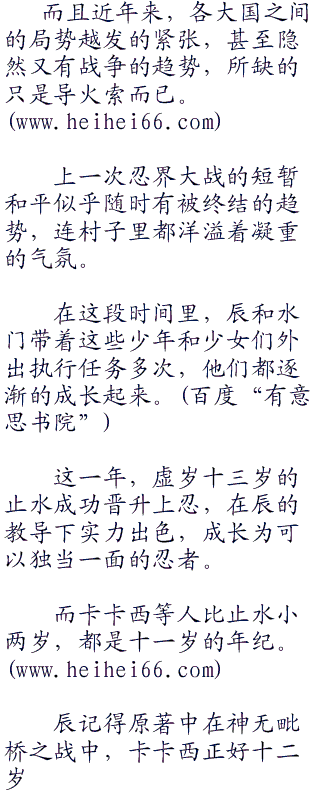 而且近年来，各大国之间
的局势越发的紧张，甚至隐
然又有战争的趋势，所缺的
只是导火索而已。
(www.heihei66.com)
上一次忍界大战的短暂
和平似乎随时有被终结的趋
势，连村子里都洋溢着凝重
的气氛。
在这段时间里，辰和水
门带着这些少年和少女们外
出执行任务多次，他们都逐
渐的成长起来。(百度“有意
思书院”)
这一年，虚岁十三岁的
止水成功晋升上忍，在辰的
教导下实力出色，成长为可
以独当一面的忍者。
而卡卡西等人比止水小
两岁，都是十一岁的年纪。
(www.heihei66.com)
辰记得原著中在神无毗
桥之战中，卡卡西正好十二
岁